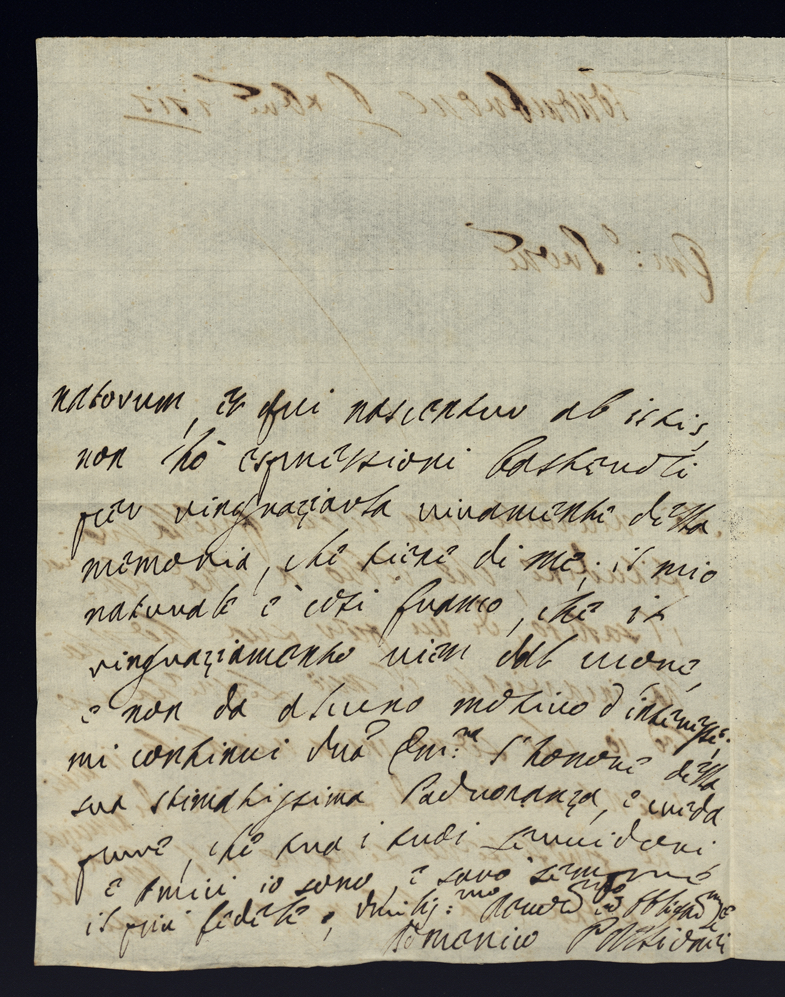 natorum, et qui nascentur ab istis,
non hò espressioni bastevoli
per ringraziarla vivamente della
memoria, che tiene di me; il mio
naturale è così franco, che il
ringraziamento vien dal cuore,
e non da alcuno motivo d'interesse.
mi continui Vrà Em:za l'honore della
sua stimatissima Padronanza, e creda
pure, che trà i suoi servidori
e Amici io sono, e sarò sempre
il più fedele, Umilis:mo
Domenico